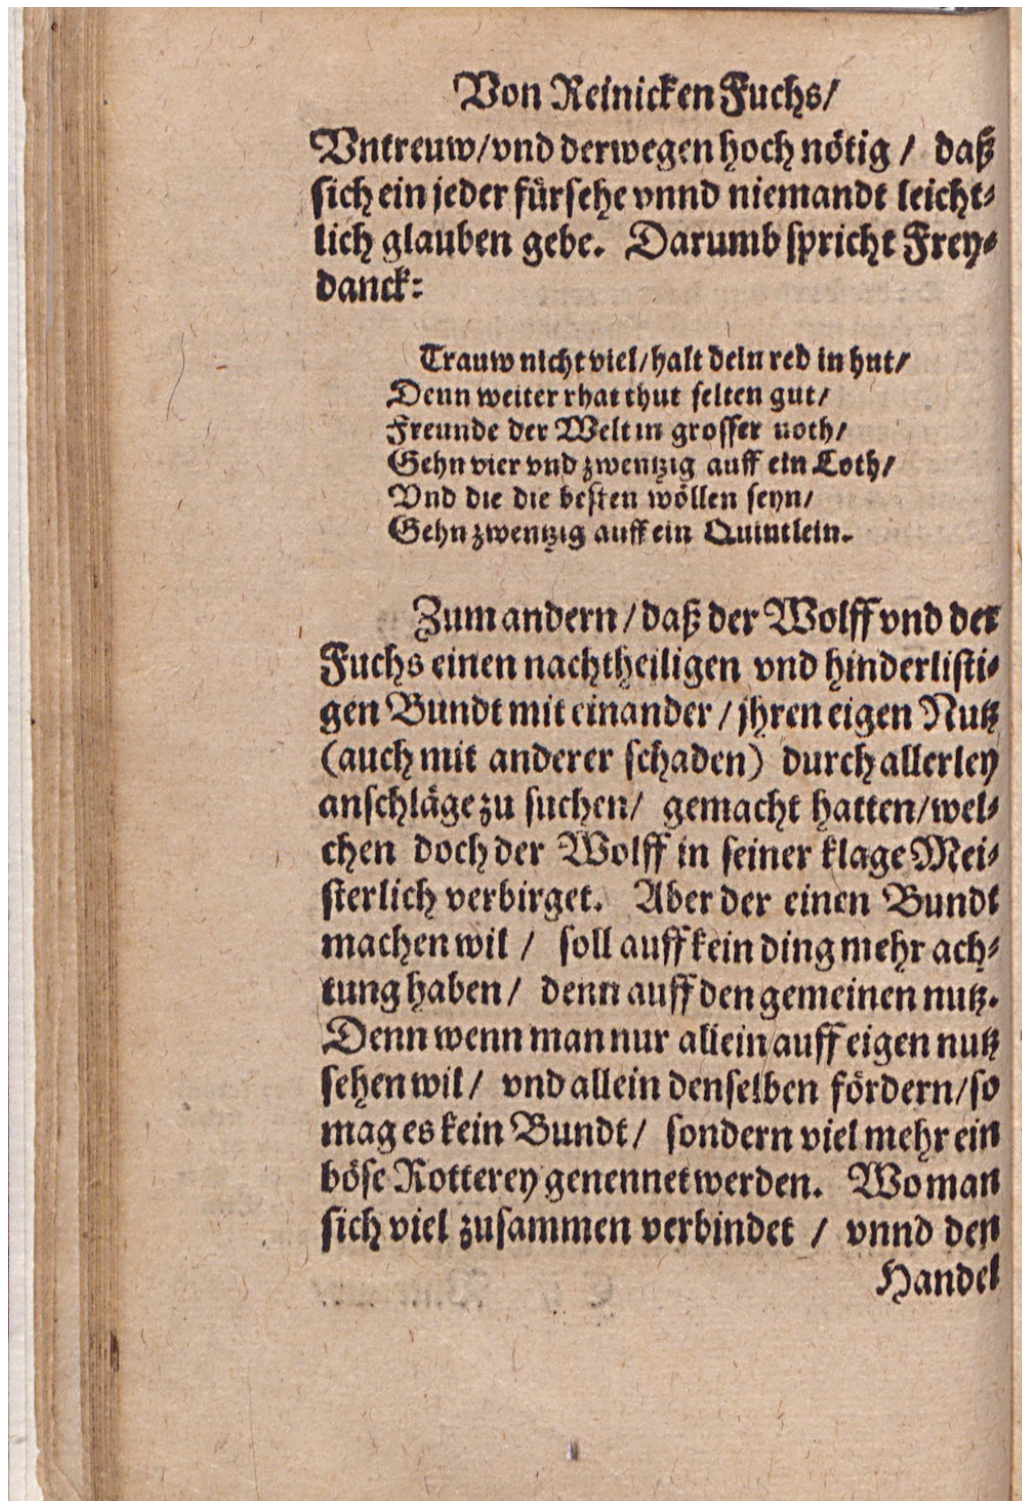 Von Reinicken Fuchs/
Vntreuw/vnd derwegen hoch nötig / daß
sich ein jeder fürsehe vnnd niemandt leicht⸗
lich glauben gebe. Darumb spricht Frey⸗
danck:
Trauw nicht viel/halt dein red in hut/
Denn weiter rhat thut selten gut/
Freunde der Welt in grosser noth/
Gehn vier vnd zwentzig auff ein Loth/
Vnd die die besten wöllen seyn/
Gehn zwentzig auff ein Quintlein.
Zum andern/daß der Wolff vnd der
Fuchs einen nachtheiligen vnd hinderlisti⸗
gen Bundt mit einander/jhren eigen Nutz
(auch mit anderer schaden) durch allerley
anschläge zu suchen/ gemacht hatten/wel⸗
chen doch der Wolff in seiner klage Mei⸗
sterlich verbirget. Aber der einen Bundt
machen wil / soll auff kein ding mehr ach⸗
tung haben/ denn auff den gemeinen nutz.
Denn wenn man nur allein auff eigen nutz
sehen wil/ vnd allein denselben fördern/so
mag es kein Bundt/ sondern viel mehr ein
böse Rotterey genennet werden. Wo man
sich viel zusammen verbindet / vnnd den
Handel